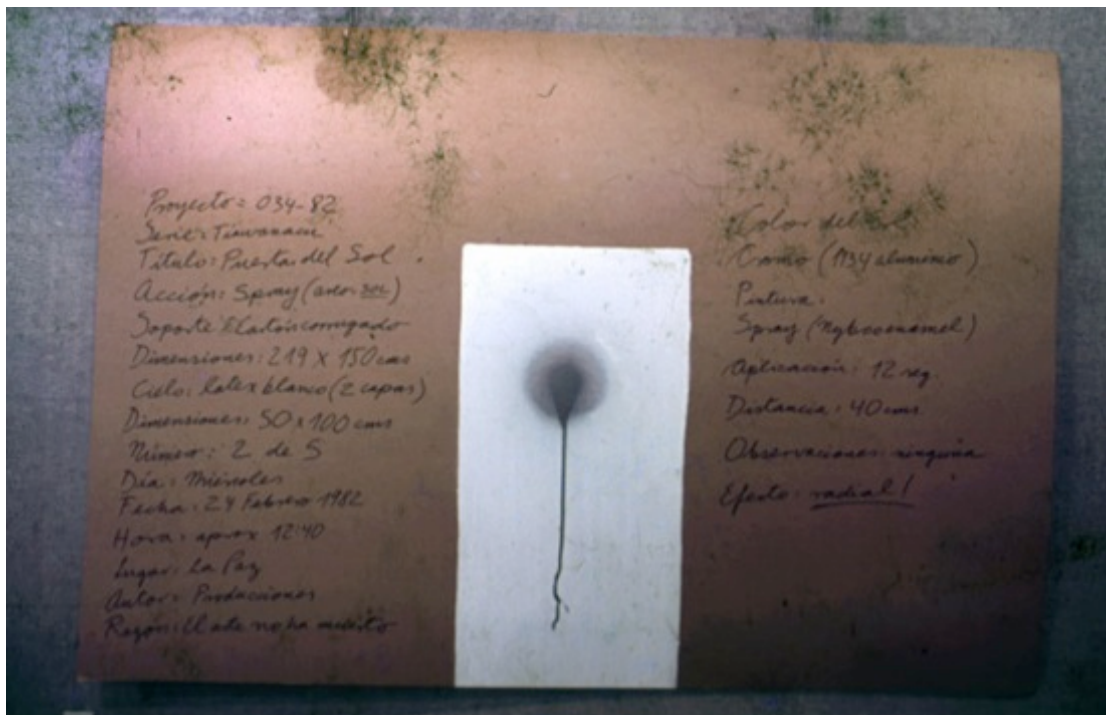 Proyecto = 034-82
Serie: Tiawanacu
Título: Puerta del Sol
Acción: Spray (aerosol)
Soporte: Cartón corrugado
Dimensiones: 219 x 150 cms
Cielo: latex blanco (2 capas)
Dimensiones: 50 x 100 cms
Número: 2 de 5
Día: Miércoles
Fecha: 24 Febrero 1982
Hora: aprox 12:40
Lugar: La Paz
Autor: Producciones
Razón: El arte no ha muerto
Color del Sol
Cromo (M34 aluminio)
Pintura.
Spray
Aplicación: 12 seg.
Distancia: 40 cms
Observaciones: ninguna
Efecto: radial!